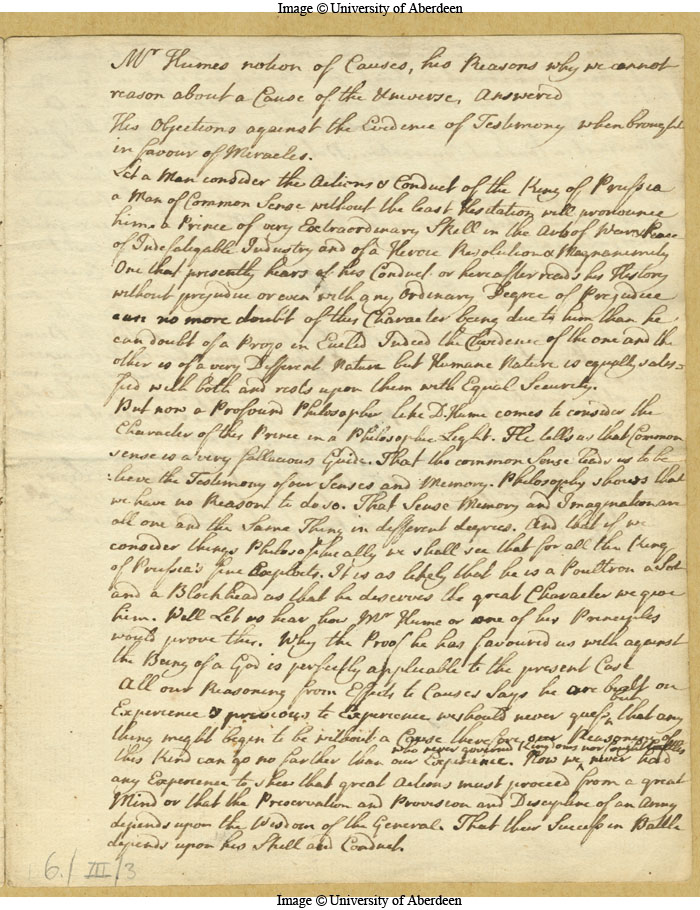 Image © University of Aberdeen
Mr Humes notion of Causes, his Reasons why we cannot
reason about a Cause of the Universe, Answered
His Objections against the Evidence of Testimony when brought
in favour of Miracles.
Let a Man consider the Actions & Conduct of the King of Prussia
a Man of Common Sense without the least Hesitation will pronounce
him a Prince of very Extraordinary Skill in the Arts of War & Peace
of Indefatigable Industry and of a Heroic Resolution & Magnanimity
One that presently hears of his Conduct or hereafter reads his History
without prejudice or even with any Ordinary Degree of Prejudice
can no more doubt of this Character being due to him than he
can doubt of a Propo in Euclid Indeed the Evidence of the one and the
other is of a very Different Nature but Humane Nature is equally satis=
fied with both and rests upon them with Equal Security.
But now a Profound Philosopher like D. Hume comes to consider the
Character of this Prince in a Philosophic Light. He tells us that Common
sense is a very fallacious Guide. That tho common Sense leads us to be
:lieve the Testimony of our Senses and Memory. Philosophy shows that
we have no Reason to do so. That Sense Memory and Imagination are
all one and the Same Thing in different degrees. And that if we
consider things Philosophically we shall see that for all the King
of Prussia's fine Exploits. It is as likely that he is a Poultron a Sot
and a Blockhead as that he deserves the great Character we give
him. Well Let us hear how Mr Hume or one of his Principles
would prove this. Why the Proof he has favoured us with against
the Being of a God is perfectly applicable to the present Case
All our Reasoning from Effects to Causes says he are built on
Experience & previous to Experience we should never guess but that any
thing might begin to be without a Cause therefore our Reasonings of
this Kind can go no farther than our Experience. Now we never had
who never governed Kingdoms nor fought Battles
any Experience to shew that great Actions must proceed from a great
Mind or that the Preservation and Provision and Discipline of an Army
depends upon the Wisdom of the General. That their Success in Battle
depends upon his Skill and Conduct.
6/III/3
Image © University of Aberdeen